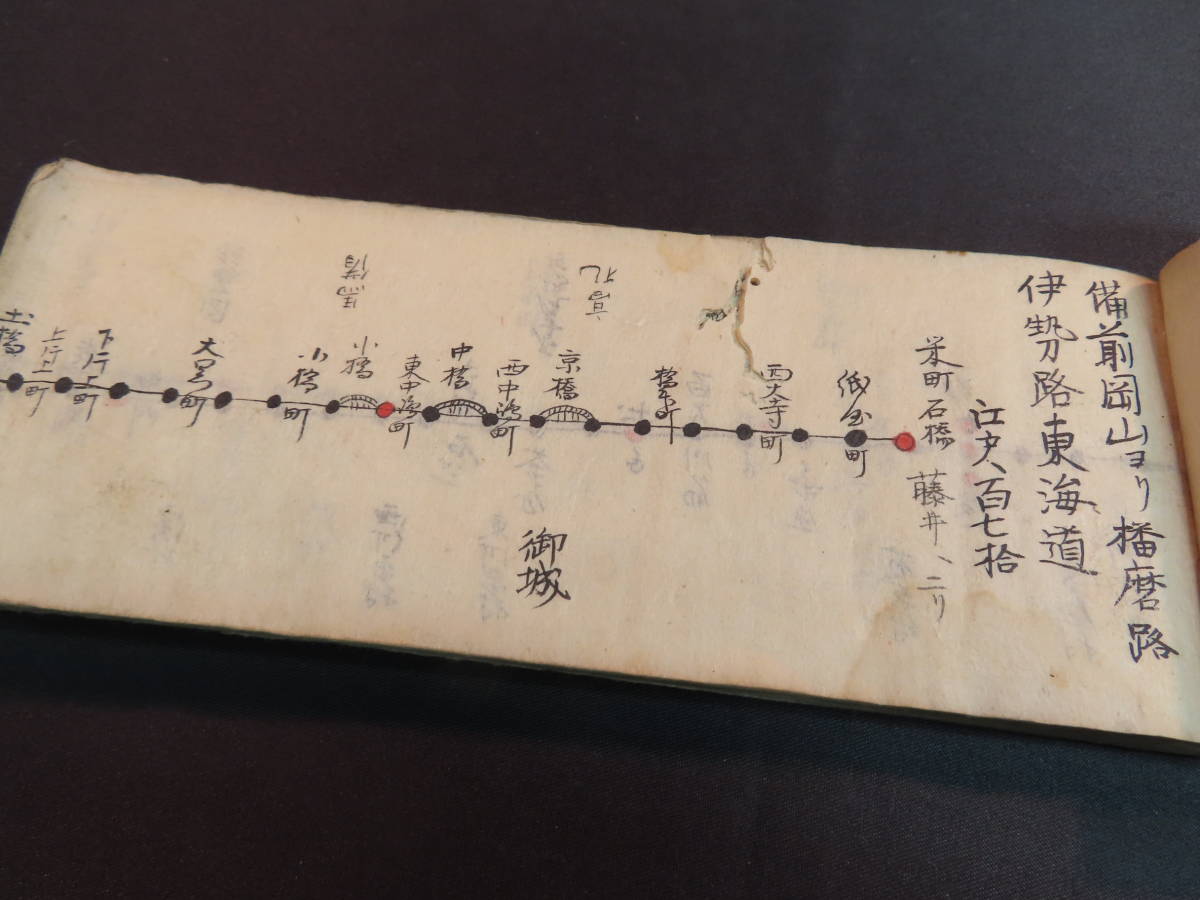 備前岡山ヨリ播磨路
伊勢路東海道
江戸八百七拾
栄町石橋
藤井ヘ二リ
紙屋町
西大寺町
橋本町
京橋
西中嶋町
中橋
東中嶋町
小橋
小橋町
大黒町
下片上町
上片上町
土橋
高札
馬借
御城